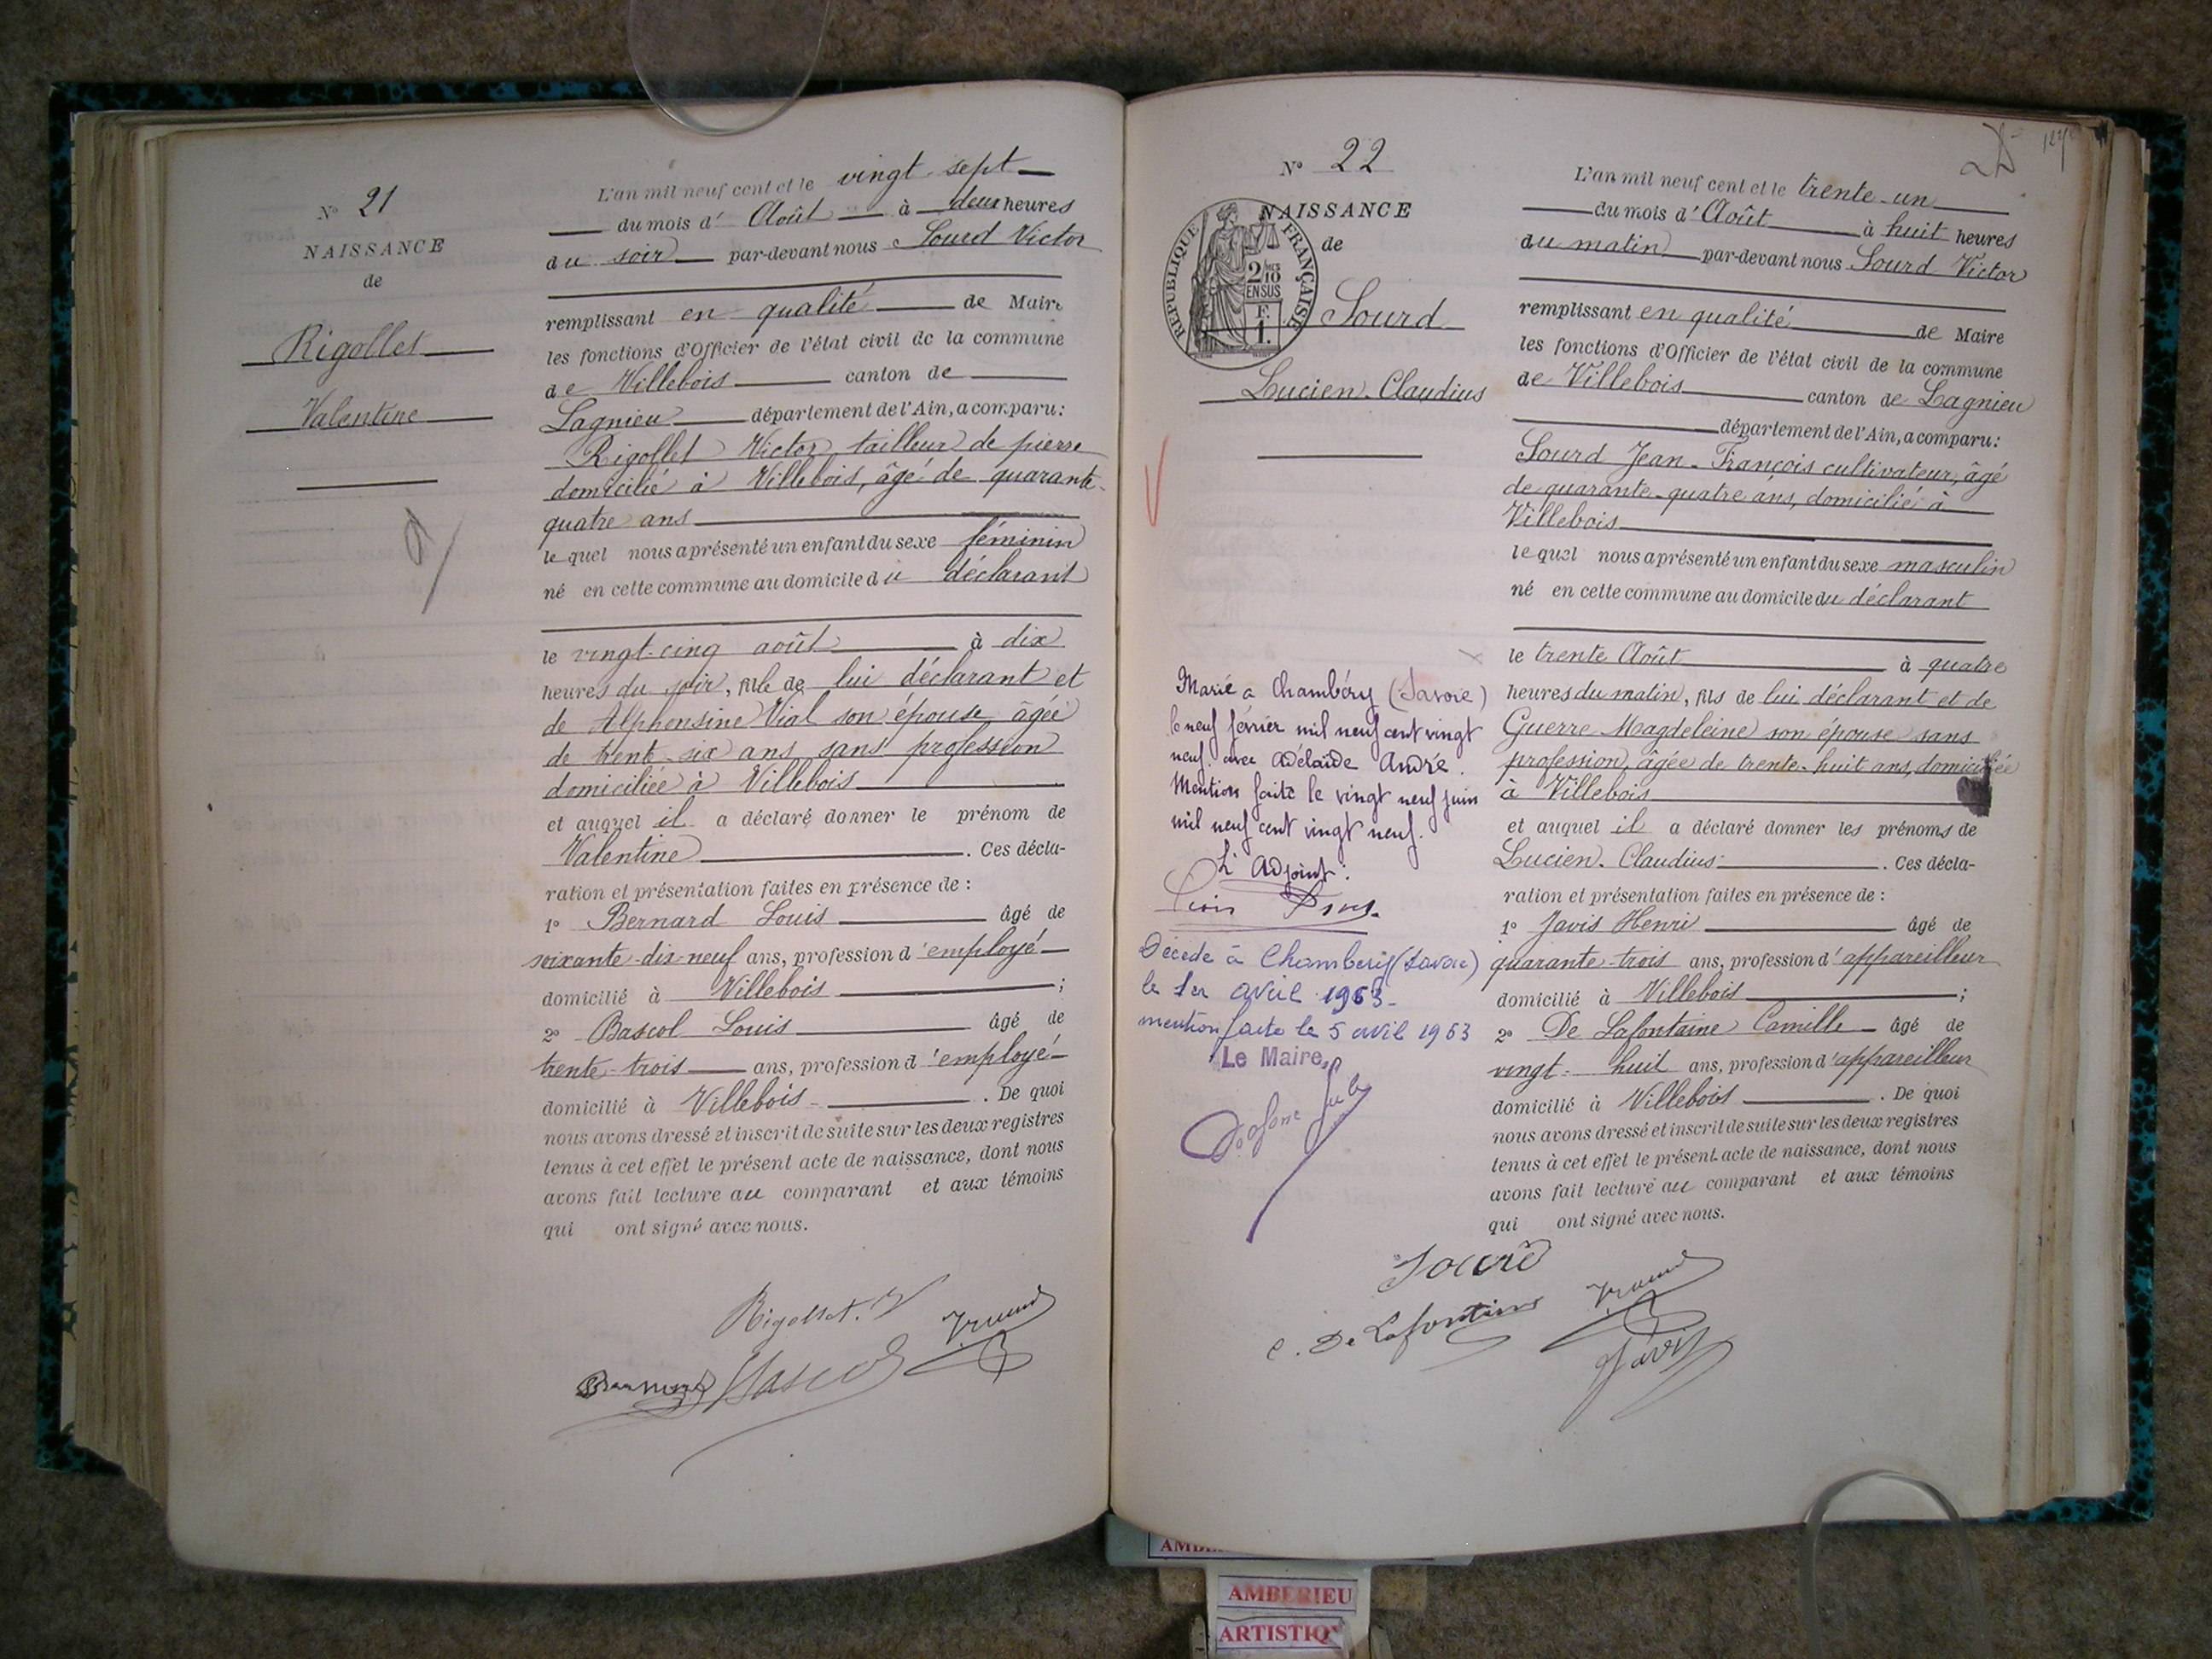 N° 21
NAISSANCE
de
Rigollet
Valentine
L'an mil neuf cent et le vingt-sept
du mois d'Août à deux heures
du soir par-devant nous Sourd Victor
remplissant en qualité de Maire
les fonctions d'Officier de l'état civil de la commune
de Villebois canton de
Lagnieu département de l'Ain, a comparu:
Rigollet Victor, tailleur de pierre
domicilié à Villebois, âgé de quarante-
quatre ans
lequel nous a présenté un enfant du sexe féminin
né en cette commune au domicile du déclarant
le vingt-cinq août à dix
heures du soir, fille de lui déclarant et
de Alphonsine Vial son épouse, âgée
de trent-six ans, sans profession
domiciliée à Villebois
et auquel il a déclaré donner le prénom de
Valentine. Ces décla-
ration et présentation faites en présence de :
1° Bernard Louis âgé de
soixante-dix-neuf ans, profession d'employé
domicilié à Villebois ;
2° Bascol Louis âgé de
trente-trois ans, profession d'employé
domicilié à Villebois. De quoi
nous avons dressé et inscrit de suite sur les deux registres
tenus à cet effet le présent acte de naissance, dont nous
avons fait lecture au comparant et aux témoins
qui ont signé avec nous.
Rigollet. V
Bernard Bascol
N° 22
NAISSANCE
de
REPUBLIQUE FRANÇAISE
2/10 EN SUS
F. 1.
Sourd
Lucien-Claudius
Marié à Chambéry (Savoie)
le neuf février mil neuf cent vingt
neuf. avec Adélaïde André.
Mention faite le vingt neuf juin
mil neuf cent vingt neuf.
L'Adjoint:
Décédé à Chambery (Savoie)
le 1er avril 1963-
mention faite le 5 avril 1963
Le Maire,
25
L'an mil neuf cent et le trente-un
du mois d'Août à huit heures
du matin par-devant nous Sourd Victor
remplissant en qualité de Maire
les fonctions d'Officier de l'état civil de la commune
de Villebois canton de Lagnieu
département de l'Ain, a comparu:
Sourd Jean-François cultivateur, âgé
de quarante-quatre ans, domicilié à
Villebois
lequel nous a présenté un enfant du sexe masculin
né en cette commune au domicile du déclarant
le trente Août à quatre
heures du matin, fils de lui déclarant et de
Guerre Magdeleine son épouse sans
profession, âgée de trente-huit ans, domiciliée
à Villebois
et auquel il a déclaré donner les prénoms de
Lucien-Claudius. Ces décla-
ration et présentation faites en présence de :
1° Javis Henri âgé de
quarante-trois ans, profession d'appareilleur
domicilié à Villebois ;
2° De Lafontaine Camille âgé de
vingt-huit ans, profession d'appareilleur
domicilié à Villebois. De quoi
nous avons dressé et inscrit de suite sur les deux registres
tenus à cet effet le présent acte de naissance, dont nous
avons fait lecture au comparant et aux témoins
qui ont signé avec nous.
Sourd
C. De Lafontaine
Javis
AMBERIEU
ARTISTIQ